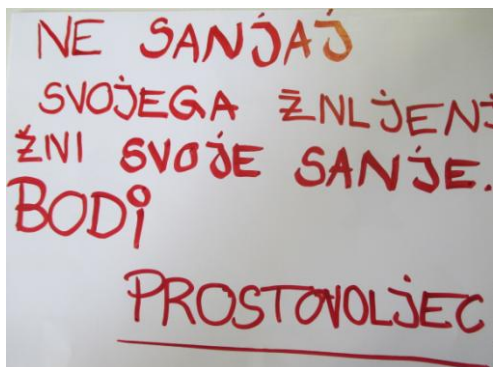 NE SANJAJ
SVOJEGA ŽIVLJENJ
ŽIVI SVOJE SANJE.
BODi
PROSTOVOLJEC